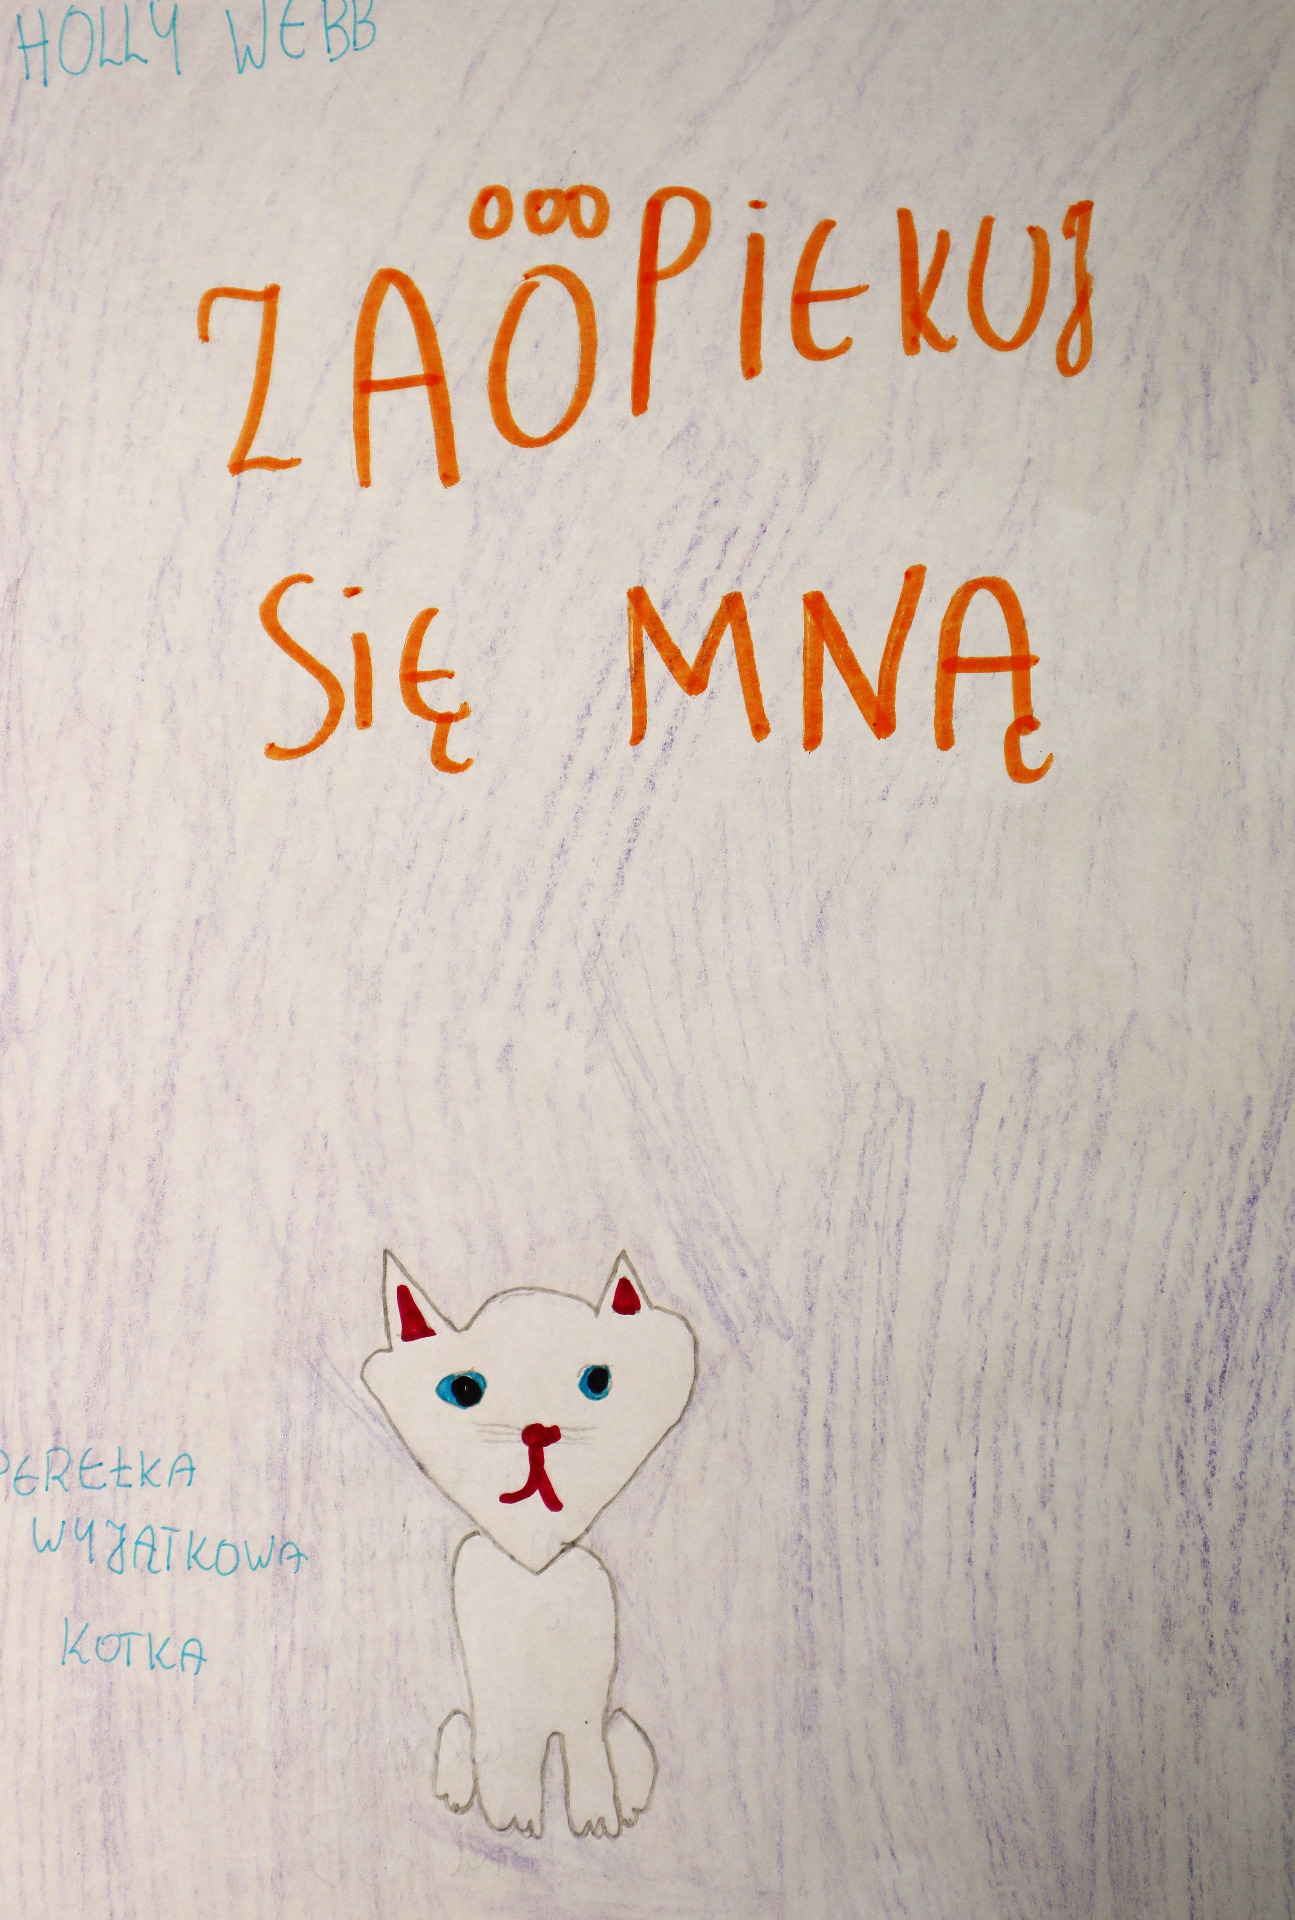 HOLLY WEBB
ZAOPiEKUJ
SiĘ MNĄ
PEREŁKA
WYJĄTKOWA
KOTKA